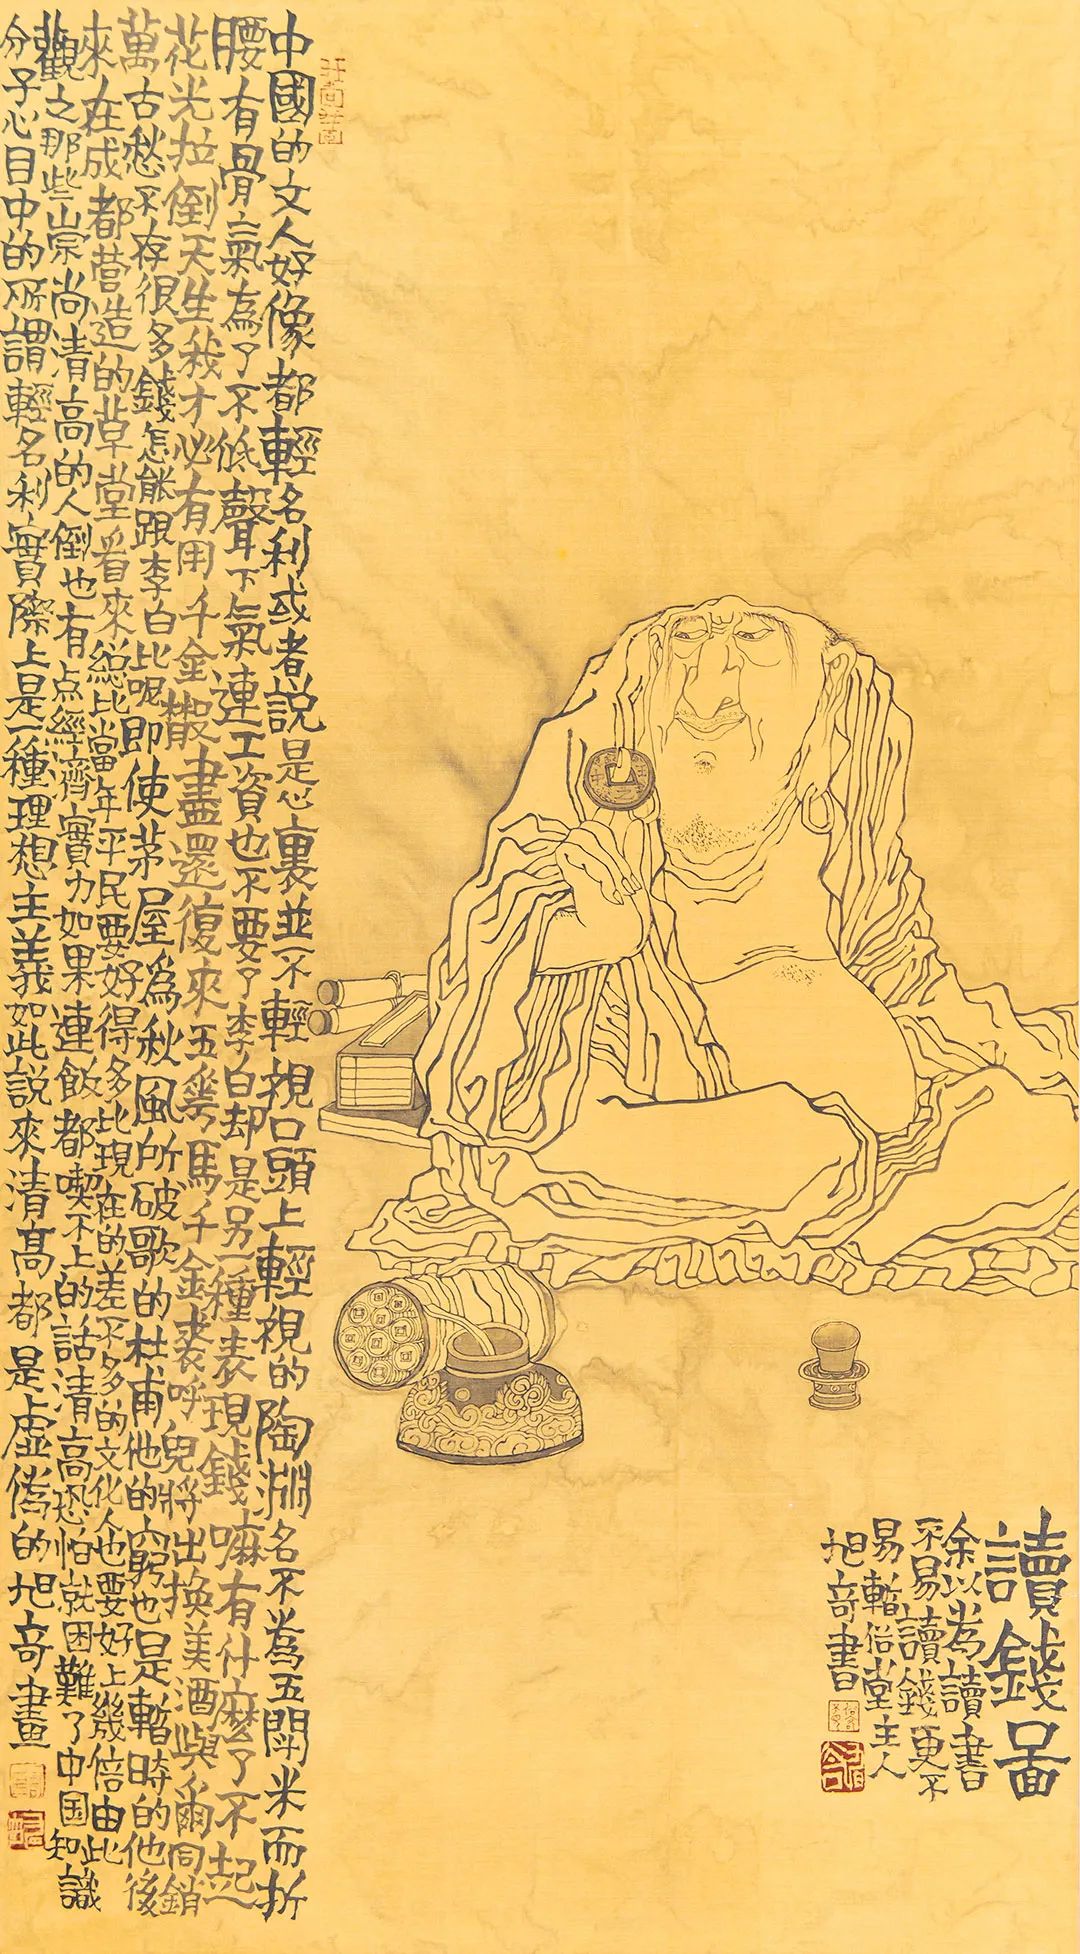 讀錢啚
余以為讀書
不易讀錢更不
易暫俗堂主人
旭奇書
中國的文人好像都輕名利或者説是心裏並不輕視口頭上輕視的陶淵名不為五閗米而折
腰有骨氣為了不低聲下氣連工資也不要了李白却是另一種表現錢嘛有什麽了不起
花光拉倒天生我才必有用千金散盡還復來五花馬千金裘呼兒將出换美酒與爾同銷
萬古愁不存很多錢怎能跟李白比呢即使茅屋為秋風所破歌的杜甫他的窮也是暫時的他後
來在成都营造的草堂看來總比當年平民要好得多比現在的差不多的文化人也要好上幾倍由此
觀之那些崇尚清高的人倒也有点經濟實力如果連飯都喫不上的話清高恐怕就困難了中国知識
分子心目中的所謂輕名利實際上是一種理想主義如此説來清高都是虛僞的旭奇畫